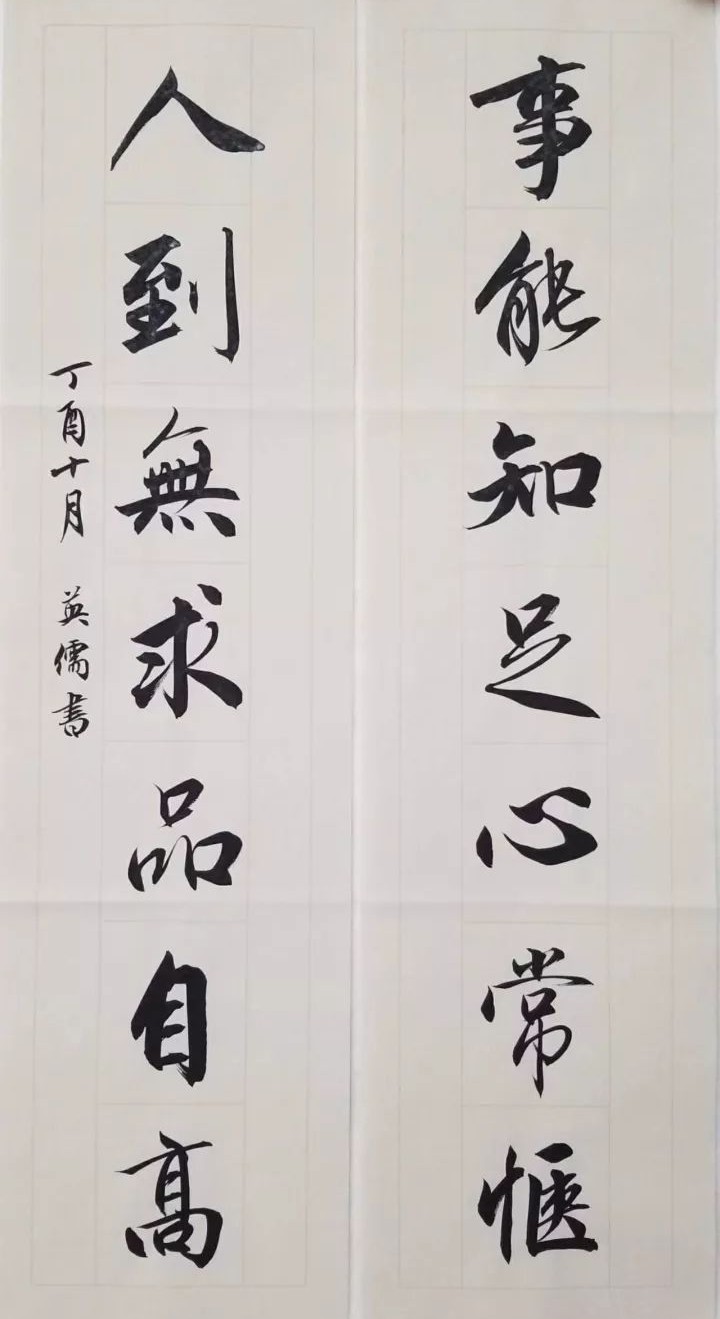 事能知足心常惬
人到無求品自高
丁酉十月 英儒書